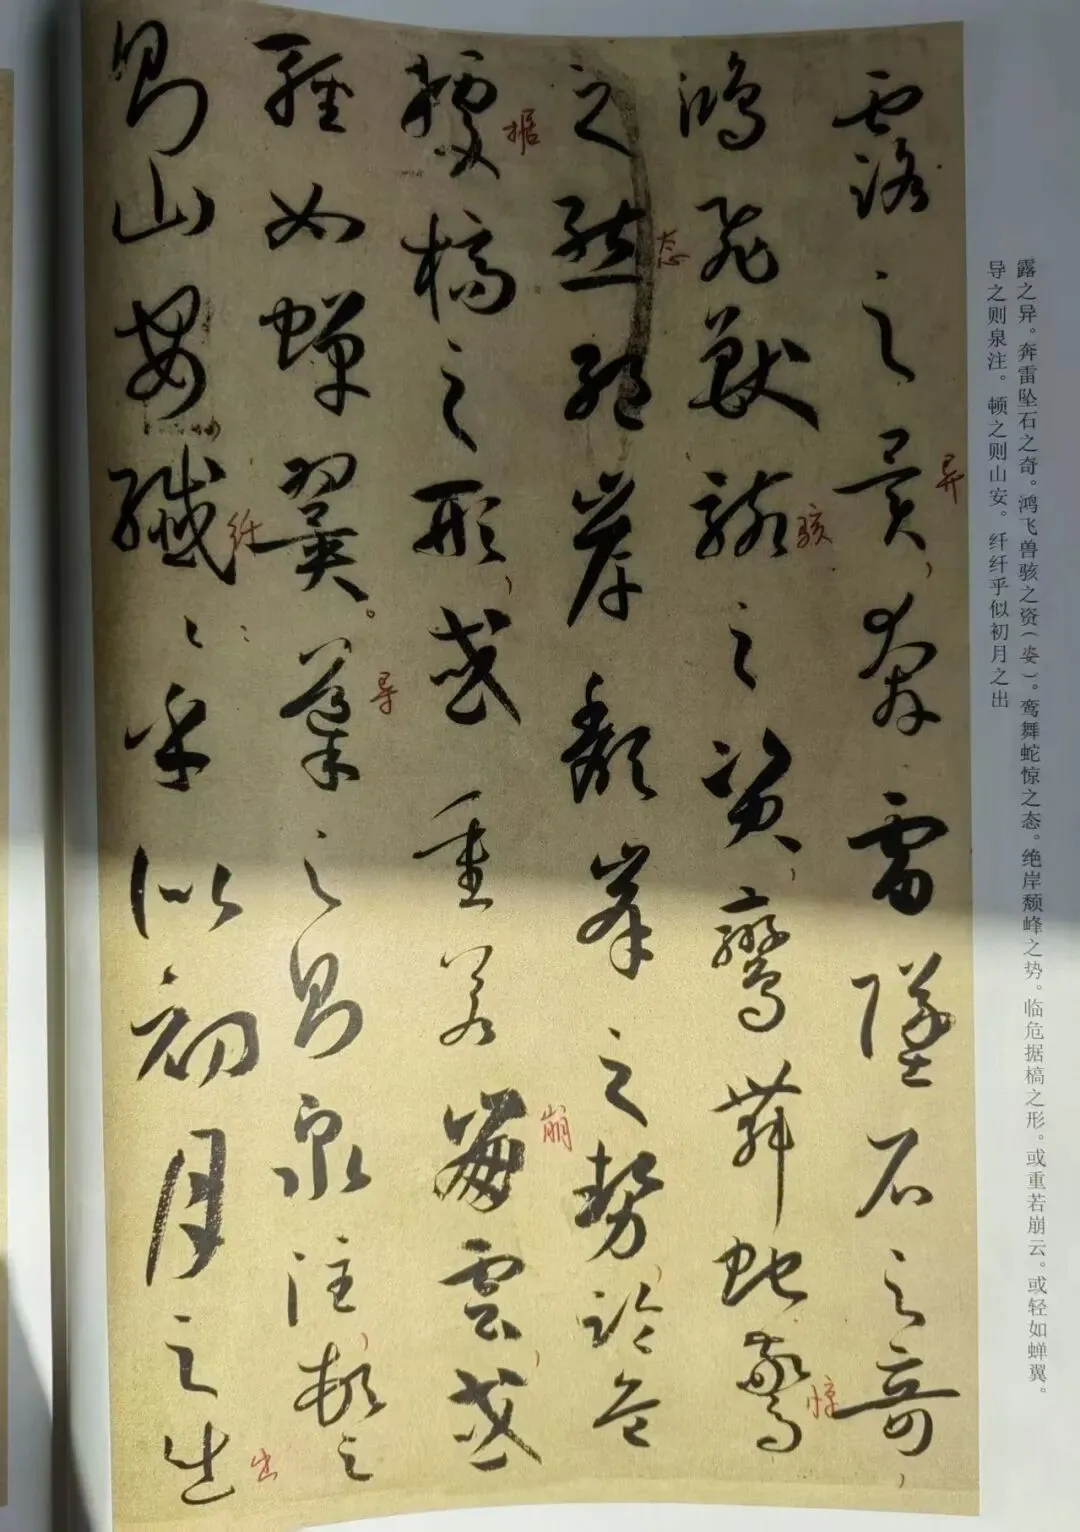 露之异。奔雷坠石之奇。鸿飞兽骇之资(姿)。鸾舞蛇惊之态。绝岸颓峰之势。临危据槁之形。或重若崩云。或轻如蝉翼。
导之则泉注。顿之则山安。纤纤乎似初月之出
露之異,奔雷墜石之奇,
异
鴻飛獸駭之資,鸞舞蛇驚
骇
惊
之態絶岸頹峯之勢,臨危
态
據槁之形,或重若崩雲,或
据
崩
輕如蟬翼。導之則泉注,頓之
导
則山安纖〻乎似初月之出
纤
出